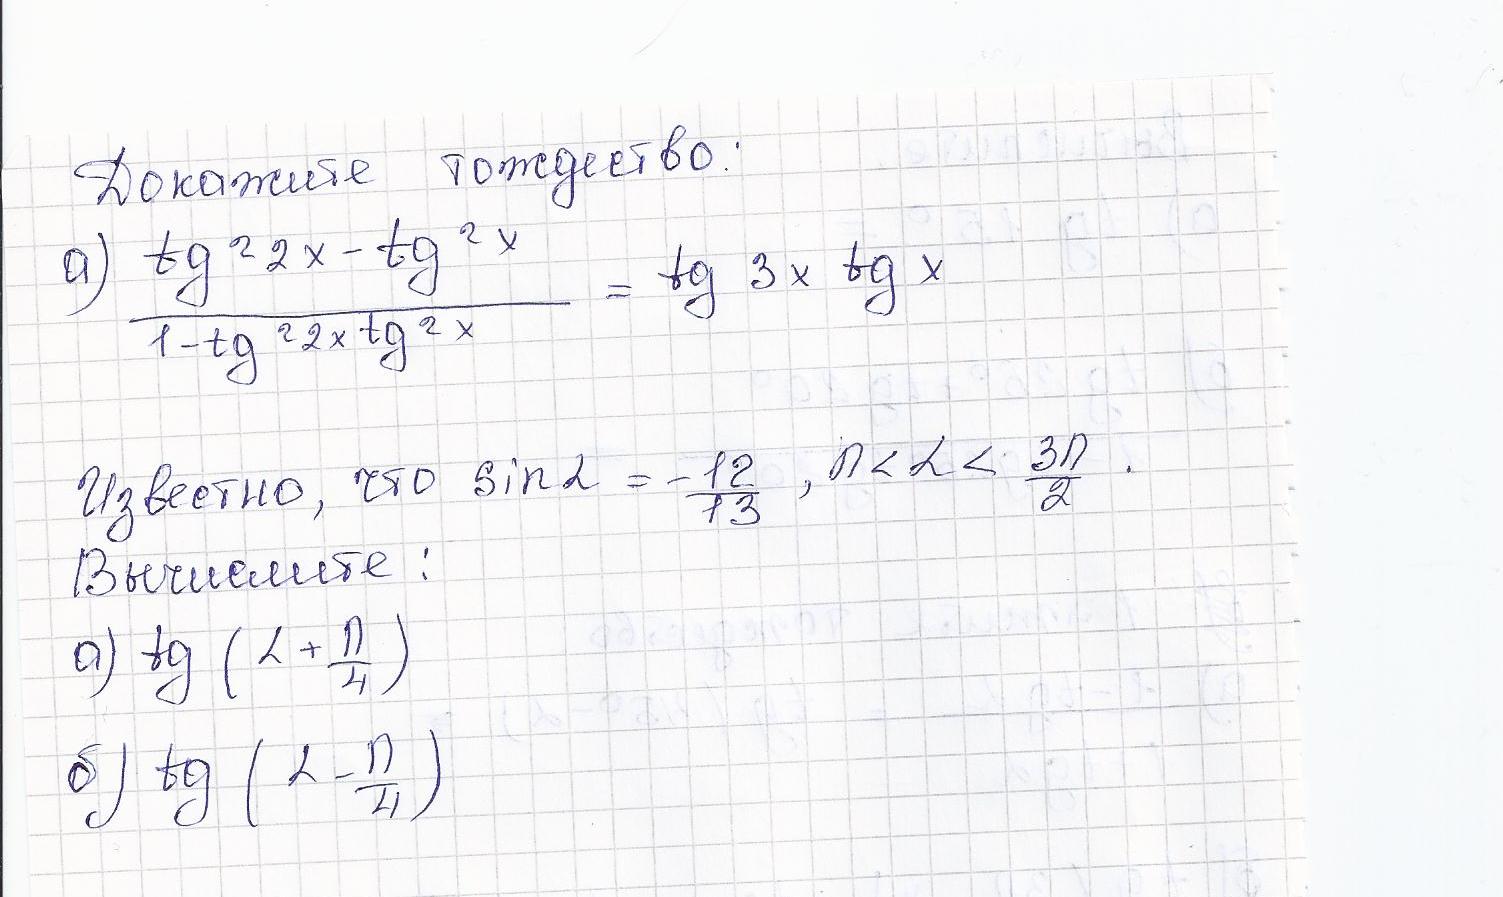 Докажите тождество:
а) (tg²2x - tg²x) / (1 - tg²2x tg²x) = tg 3x tg x
Известно, что sin α = -12/13, π < α < 3π/2.
Вычислите:
а) tg (α + π/4)
б) tg (α - π/4)